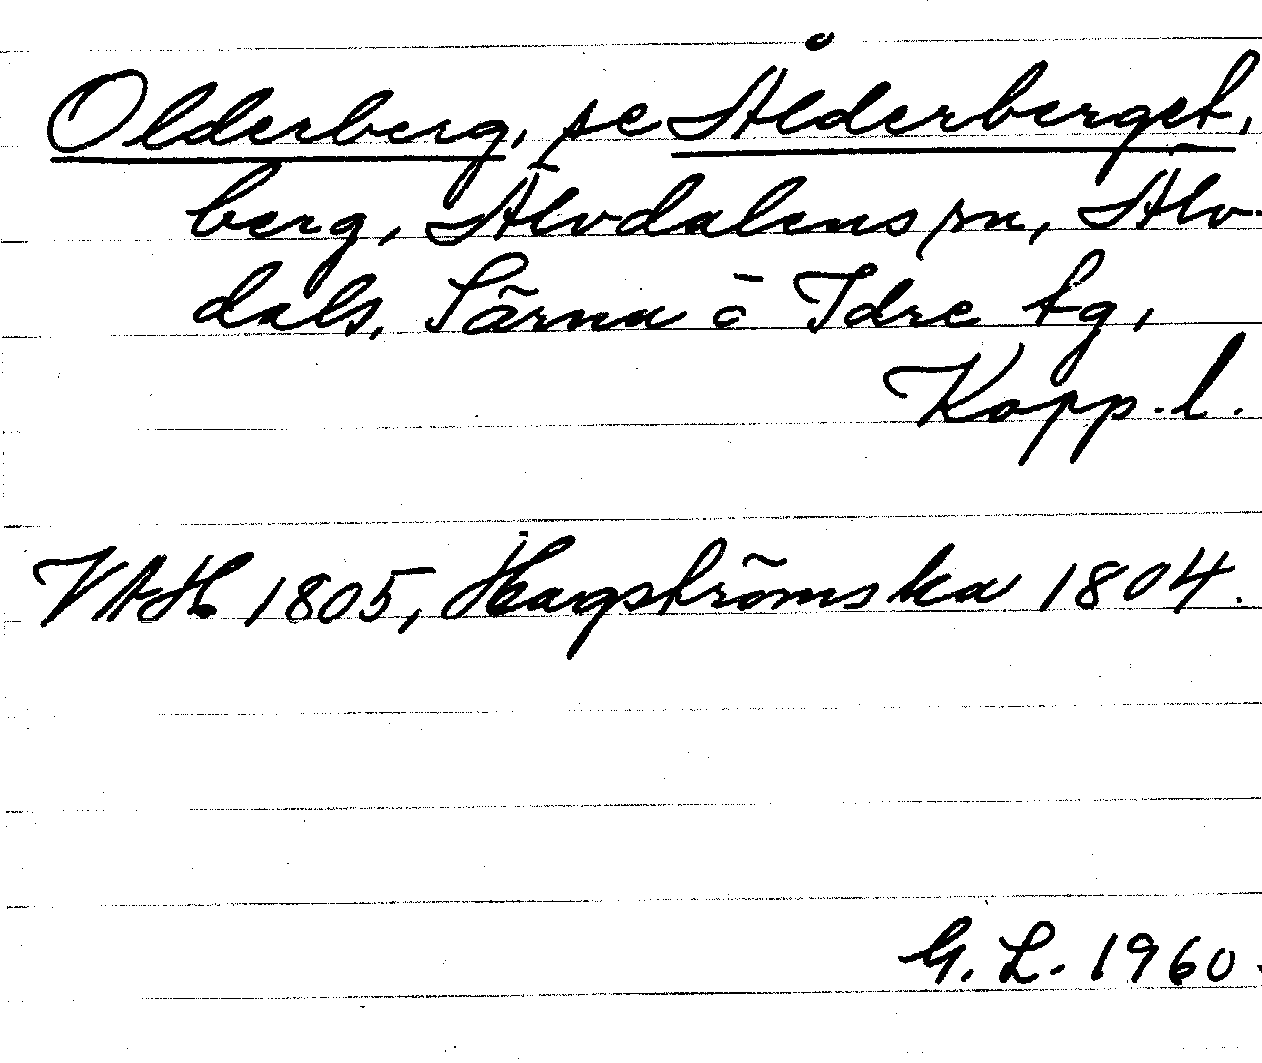 Olderberg, se Ålderberget,
berg, Älvdalens sn, Älv-
dals, Särna o Idre tg,
Kopp. l.
VAH 1805, Hagströmska 1804.
G. L. 1960.